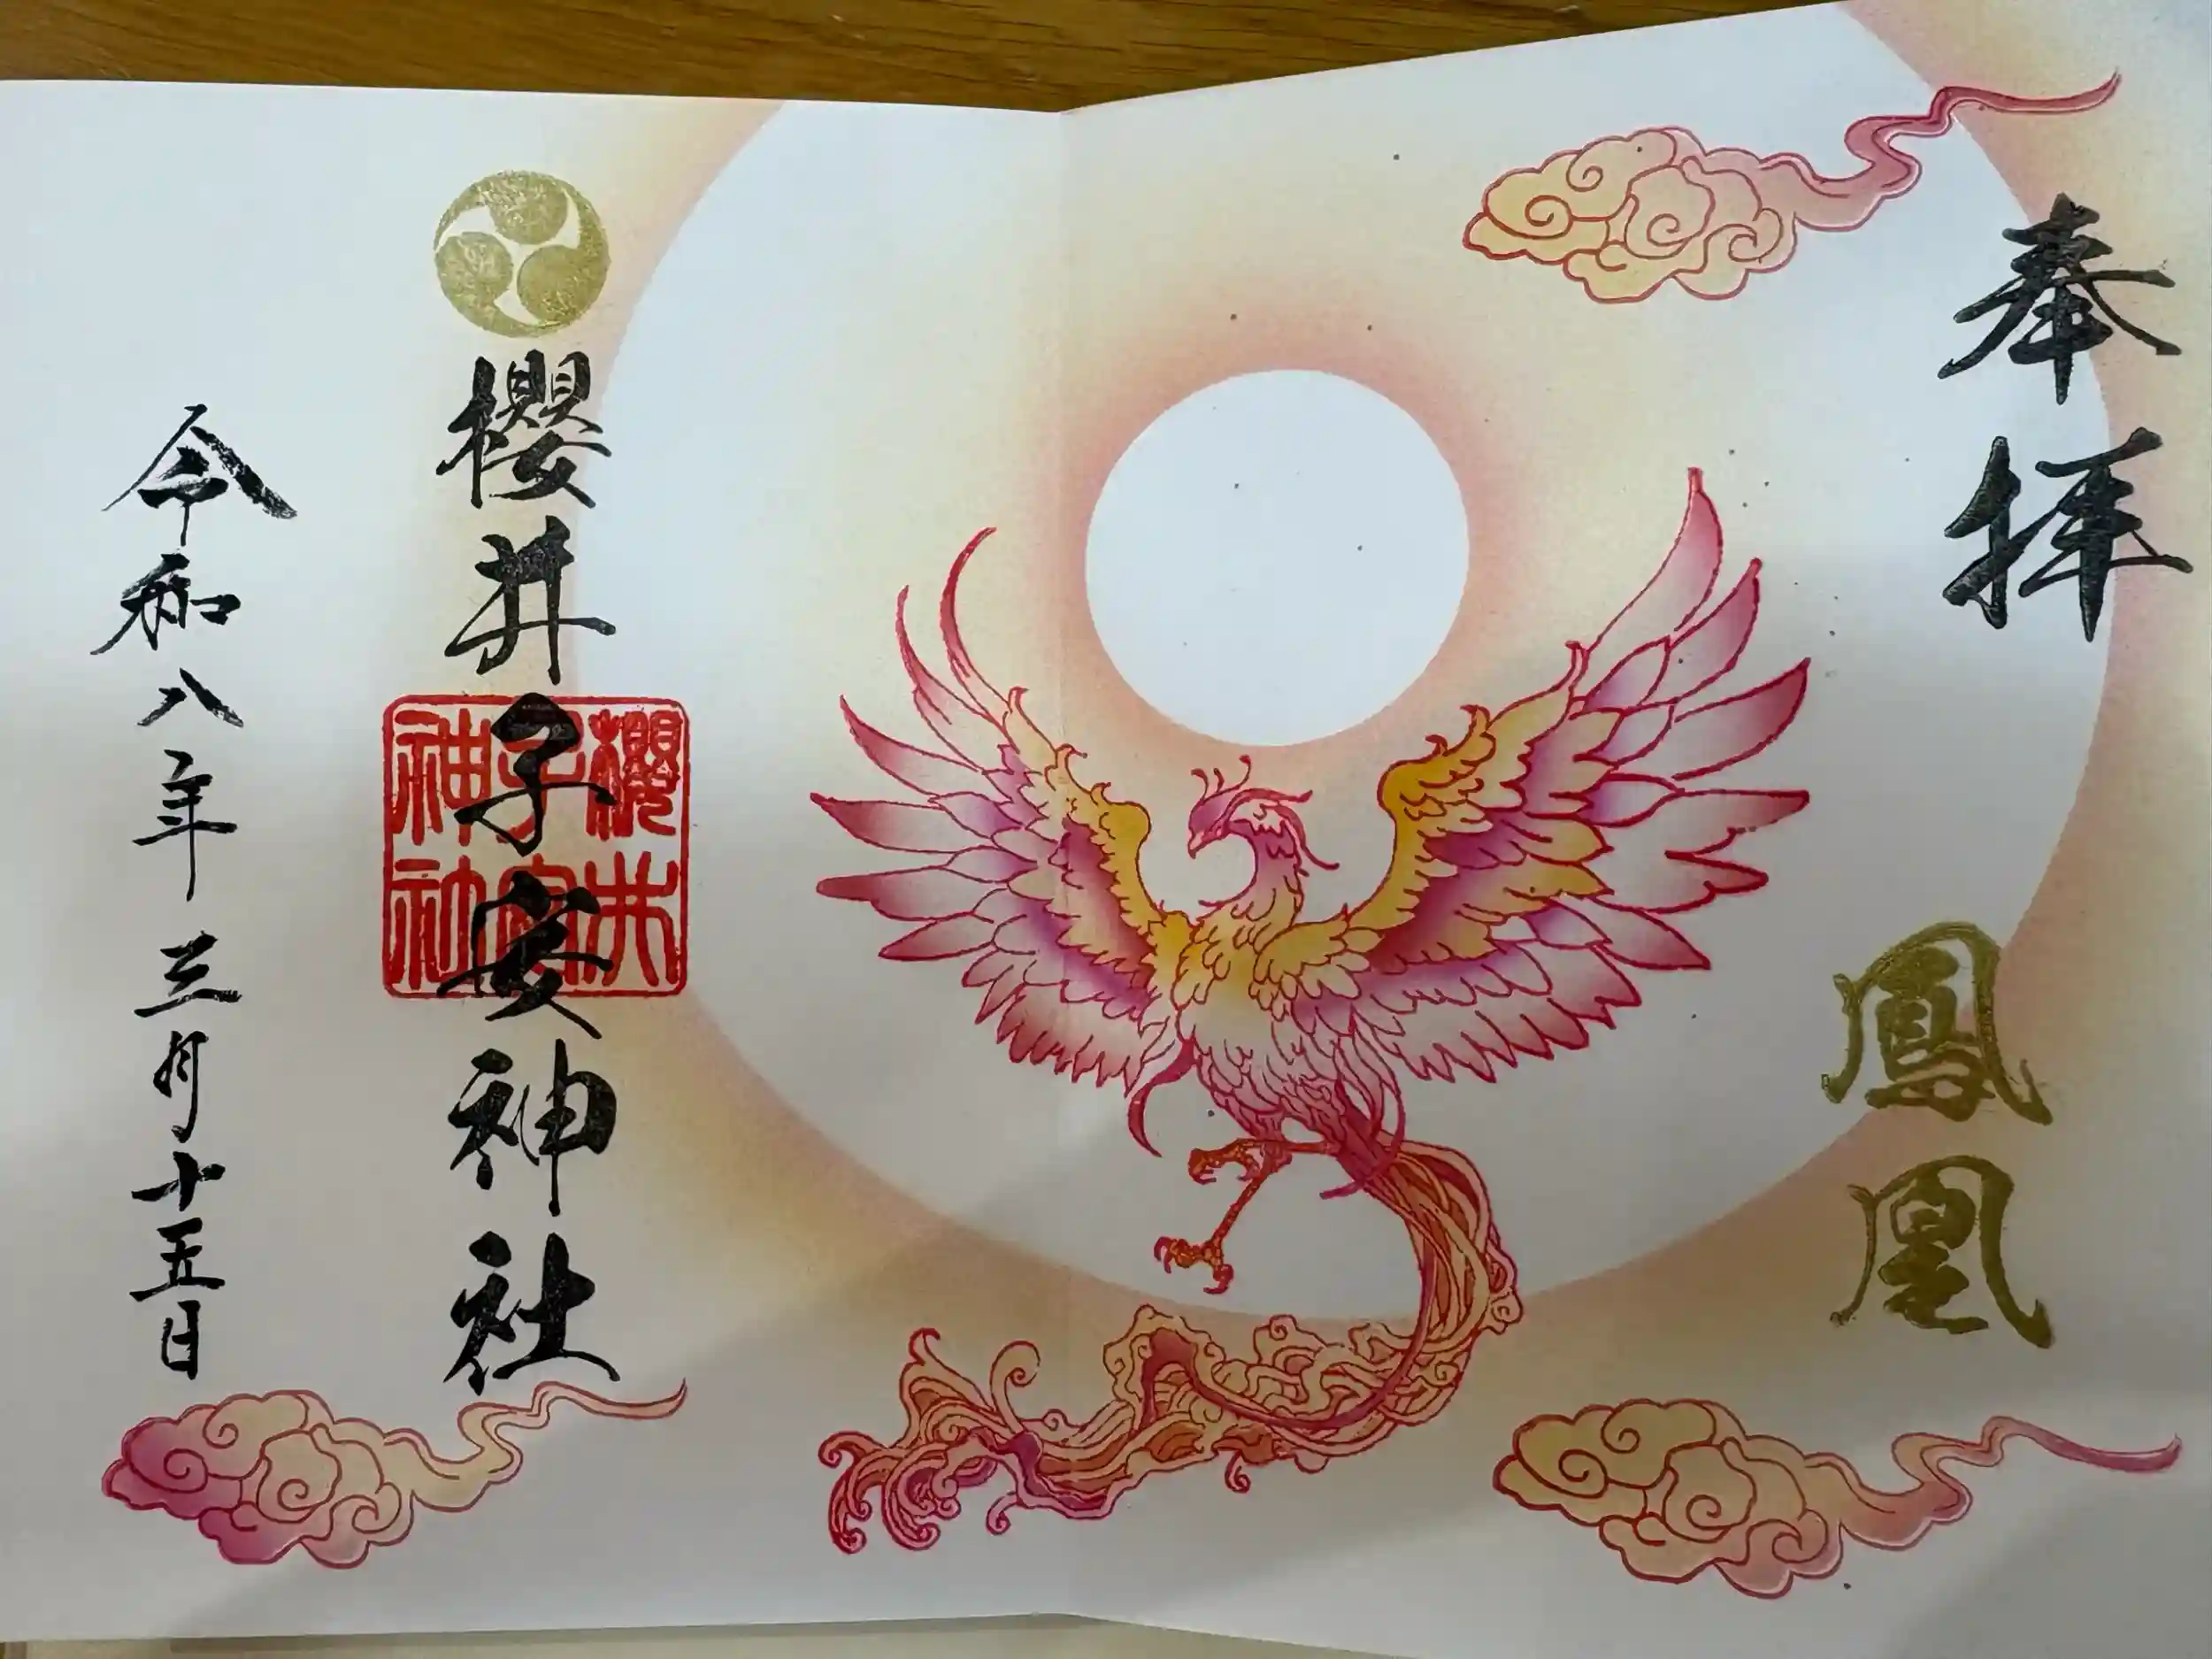 奉拝
鳳凰
櫻井子安神社
櫻井
子安
神社
令和八年三月十五日